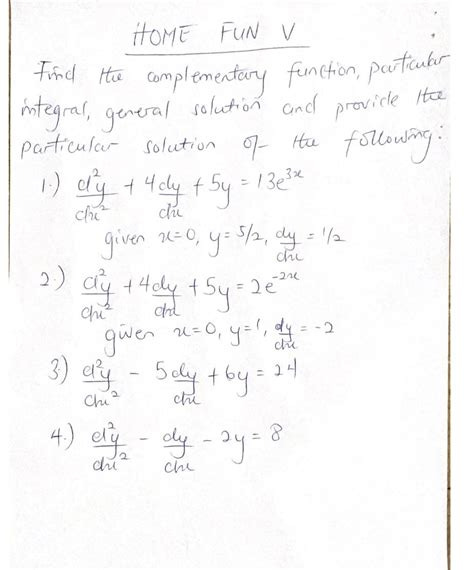 HOME FUN V
Find the complementary function, particular
integral, general solution and provide the
particular solution of the following:
1.) d²y/dx² + 4dy/dx + 5y = 13e^3x
given x=0, y=5/2, dy/dx = 1/2
2.) d²y/dx² + 4dy/dx + 5y = 2e^-2x
given x=0, y=1, dy/dx = -2
3) d²y/dx² - 5dy/dx + 6y = 24
4.) d²y/dx² - dy/dx - 2y = 8